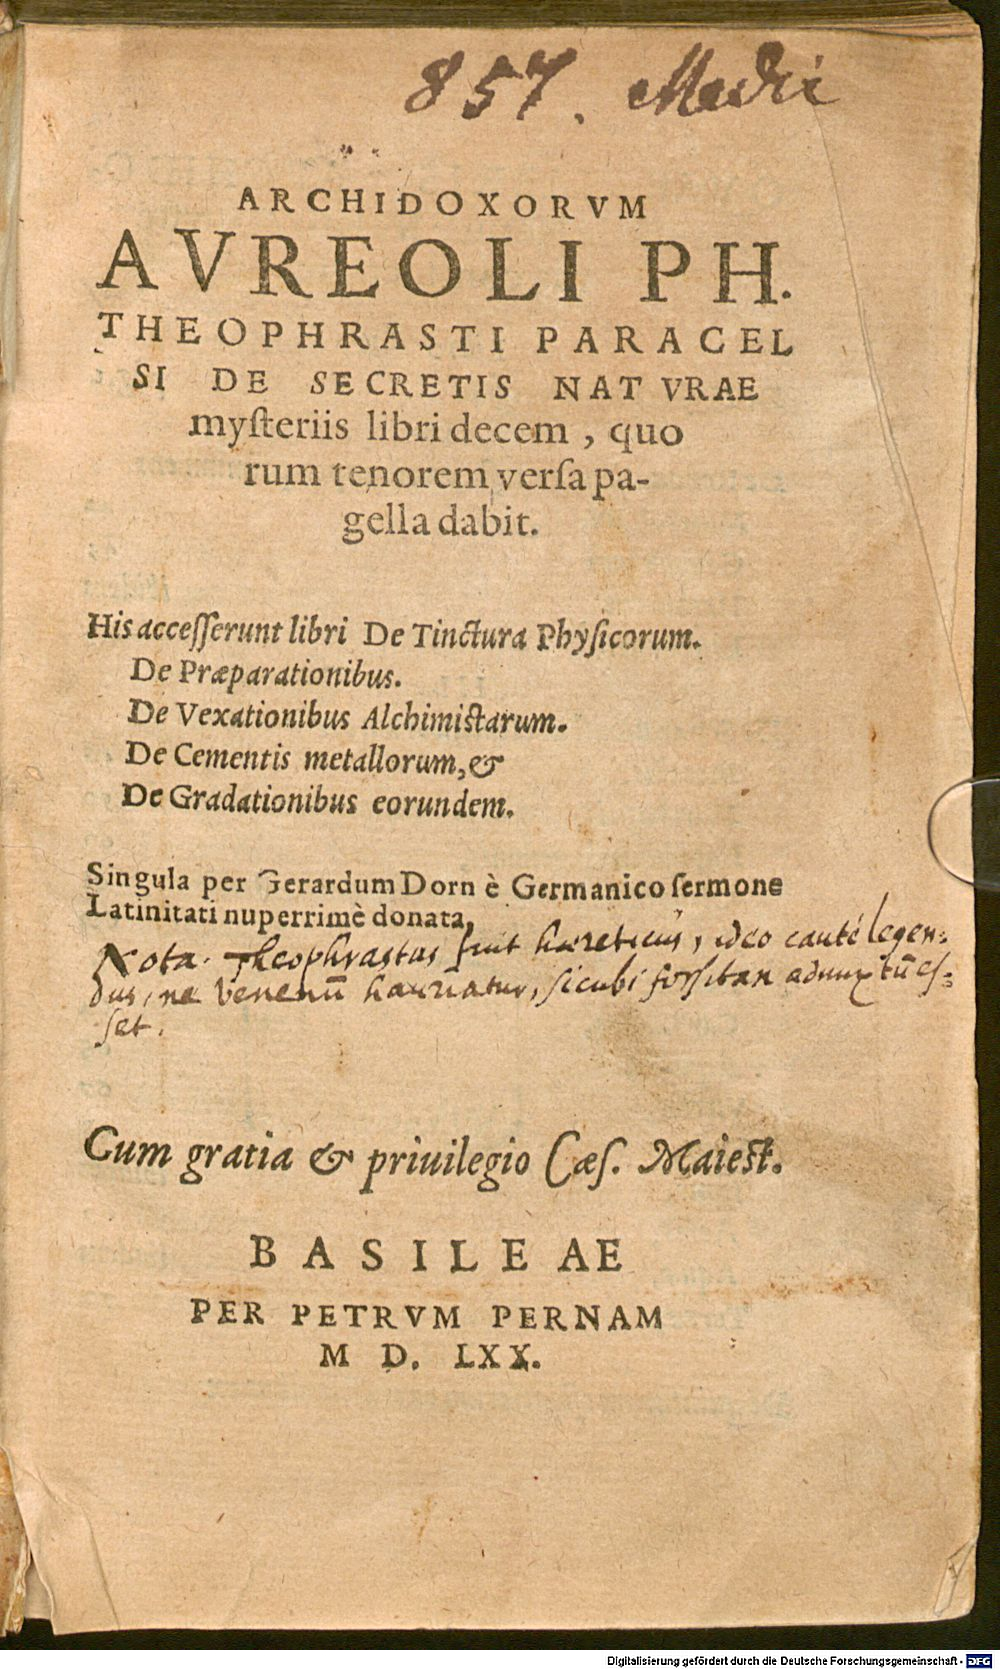 857. Medic
ARCHIDOXORVM
AVREOLI PH.
THEOPHRASTI PARACEL
SI DE SECRETIS NATVRAE
myſteriis libri decem, quo
rum tenorem verſa pa-
gella dabit.
His acceſſerunt libri De Tinctura Phyſicorum.
De Præparationibus.
De Vexationibus Alchimistarum.
De Cementis metallorum, &
De Gradationibus eorundem.
Singula per Gerardum Dorn è Germanico ſermone
Latinitati nuperrimè donata,
Nota. Theophrastus fuit haereticus, ideo cauté legen=
dus, ne venenū hauriatur, sicubi forsitan admixtū es=
set.
Cum gratia & priuilegio Cæſ. Maiest.
BASILEAE
PER PETRVM PERNAM
M D. LXX.
Digitalisierung gefördert durch die Deutsche Forschungsgemeinschaft - DFG